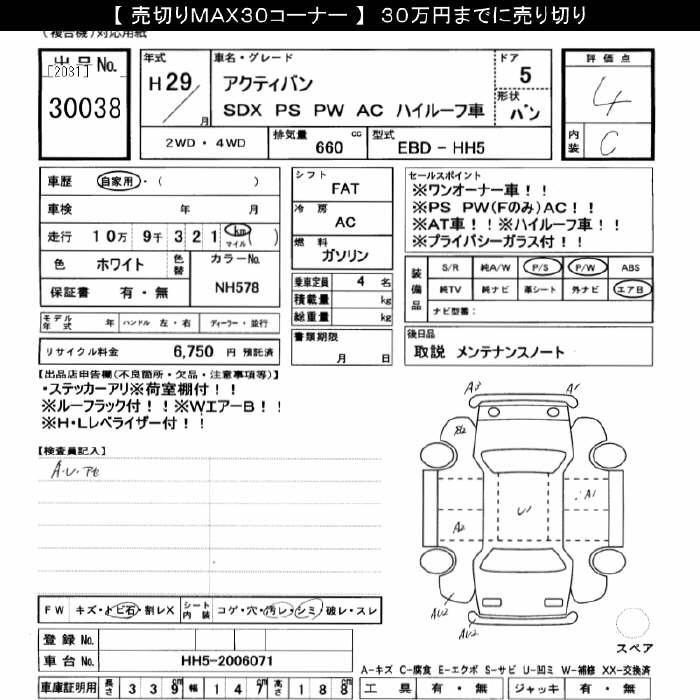 【 売切りMAX30コーナー 】 30万円までに売り切り
(複合機)対応用紙
出品No. [2031] 30038
年式 H 29 月
車名・グレード アクティバン
SDX PS PW AC ハイルーフ車
ドア 5
形状 バン
評価点 4
内装 C
2WD・4WD 排気量 660 cc 型式 EBD - HH5
車歴 自家用・( )
車検 年 月
走行 10万 9千 3 2 1 km マイル ( )
色 ホワイト 色替 カラーNo. NH578
保証書 有・無
シフト FAT
冷房 AC
燃料 ガソリン
乗車定員 4 名
積載量 kg
総重量 kg
セールスポイント
※ワンオーナー車!!
※PS PW(Fのみ)AC!!
※AT車!!※ハイルーフ車!!
※プライバシーガラス付!!
装備品 S/R 純A/W P/S P/W ABS
純TV 純ナビ 革シート 外ナビ エアB
ナビ型番:
モデル年式 年 ハンドル 左・右 ディーラー・並行
リサイクル料金 6,750 円 預託済
書類期限 月 日
後日品
取説 メンテナンスノート
【出品店申告欄(不良箇所・欠品・注意事項等)】
・ステッカーアリ※荷室棚付!!
※ルーフラック付!!※WエアーB!!
※H・Lレベライザー付!!
【検査員記入】
A3 A1
A1
U1
A2
AU2
AU2
FW キズ・トビ石・割レX シート内装 コゲ・穴・汚レ・シミ・破レ・スレ
登録 No.
車台 No. HH5-2006071
スペア
A-キズ C-腐食 E-エクボ S-サビ U-凹ミ W-補修 XX-交換済
車庫証明用 長さ 3 3 9 cm 幅 1 4 7 cm 高さ 1 8 8 cm
工具 有・無 ジャッキ 有・無